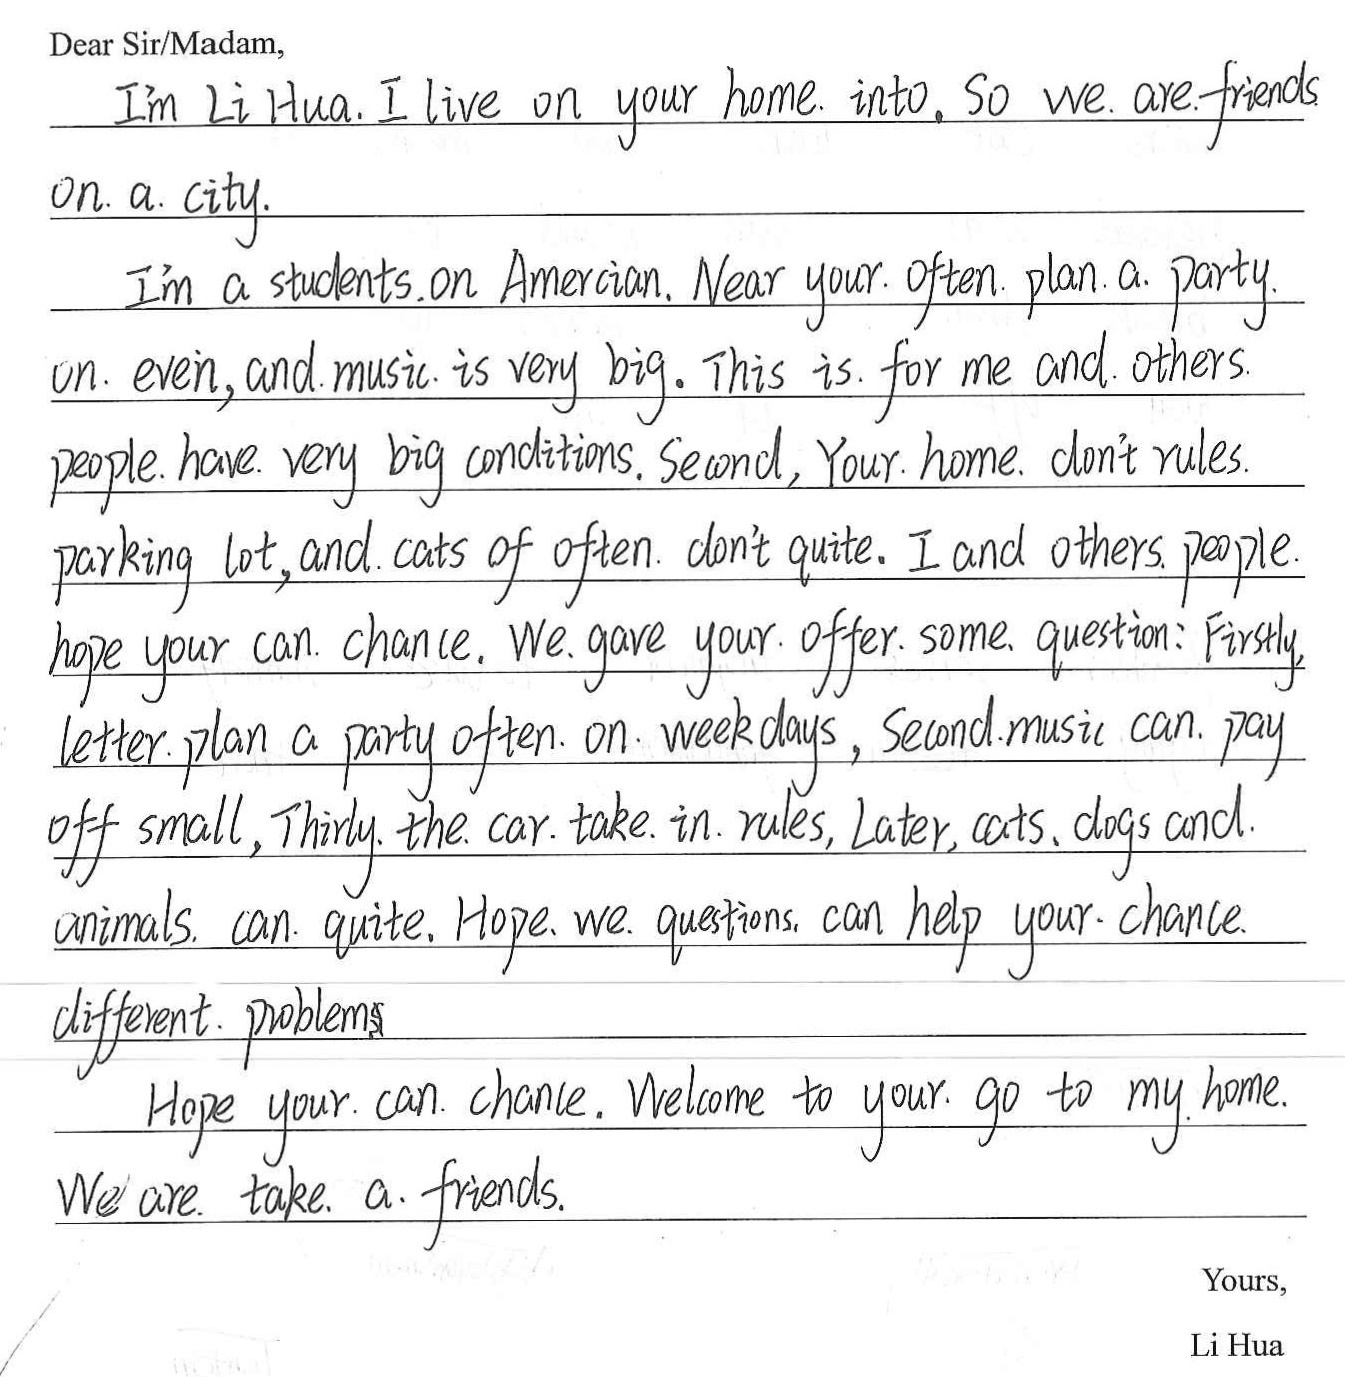 Dear Sir/Madam,
I'm Li Hua. I live on your home. into. So we. are. friends
on. a. city.
I'm a students. on Amercian. Near your. often. plan. a. party.
on. even, and. music. is very big. This is. for me and. others.
people. have. very big conditions. Second, Your. home. don't rules.
parking lot, and. cats of often. don't quite. I and others. people.
hope your can. chance. We. gave your. offer. some. question: Firstly,
letter. plan a party often. on. weekdays, Second. music can. pay
off small, Thirly. the. car. take. in. rules, Later, cats. dogs and.
animals. can. quite. Hope. we. questions. can help your. chance.
different. problems
Hope your. can. chance. Welcome to your. go to my. home.
We are. take. a. friends.
Yours,
Li Hua